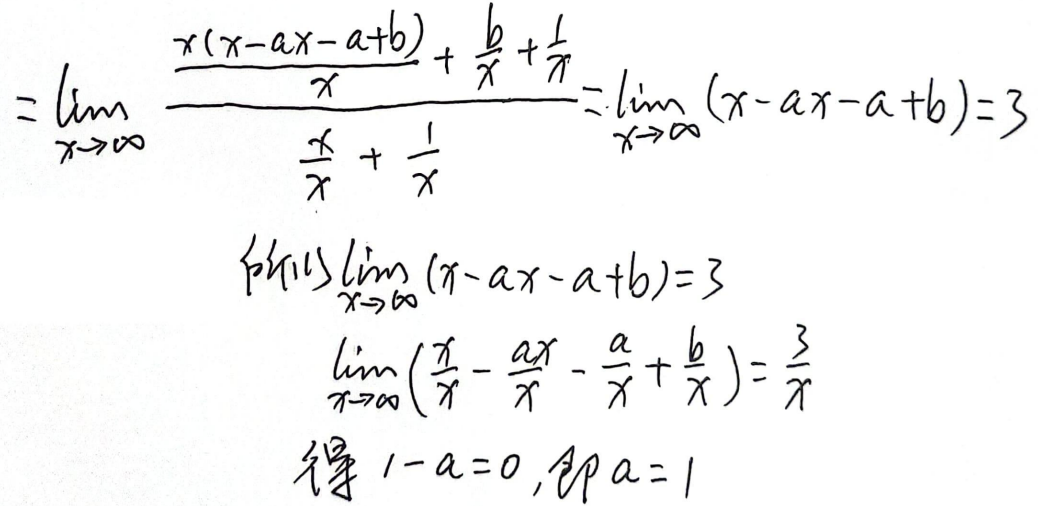 = lim_{x→∞} \frac{\frac{x(x-ax-a+b)}{x} + \frac{b}{x} + \frac{1}{x}}{\frac{x}{x} + \frac{1}{x}} = lim_{x→∞} (x-ax-a+b)=3
所以 lim_{x→∞} (x-ax-a+b)=3
lim_{x→∞} (\frac{x}{x} - \frac{ax}{x} - \frac{a}{x} + \frac{b}{x}) = \frac{3}{x}
得 1-a=0,即a=1